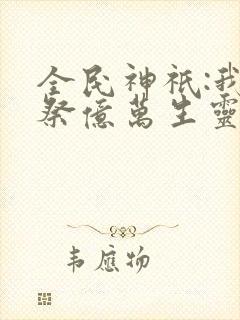 全民神祇:我
祭億萬生靈
韦應物